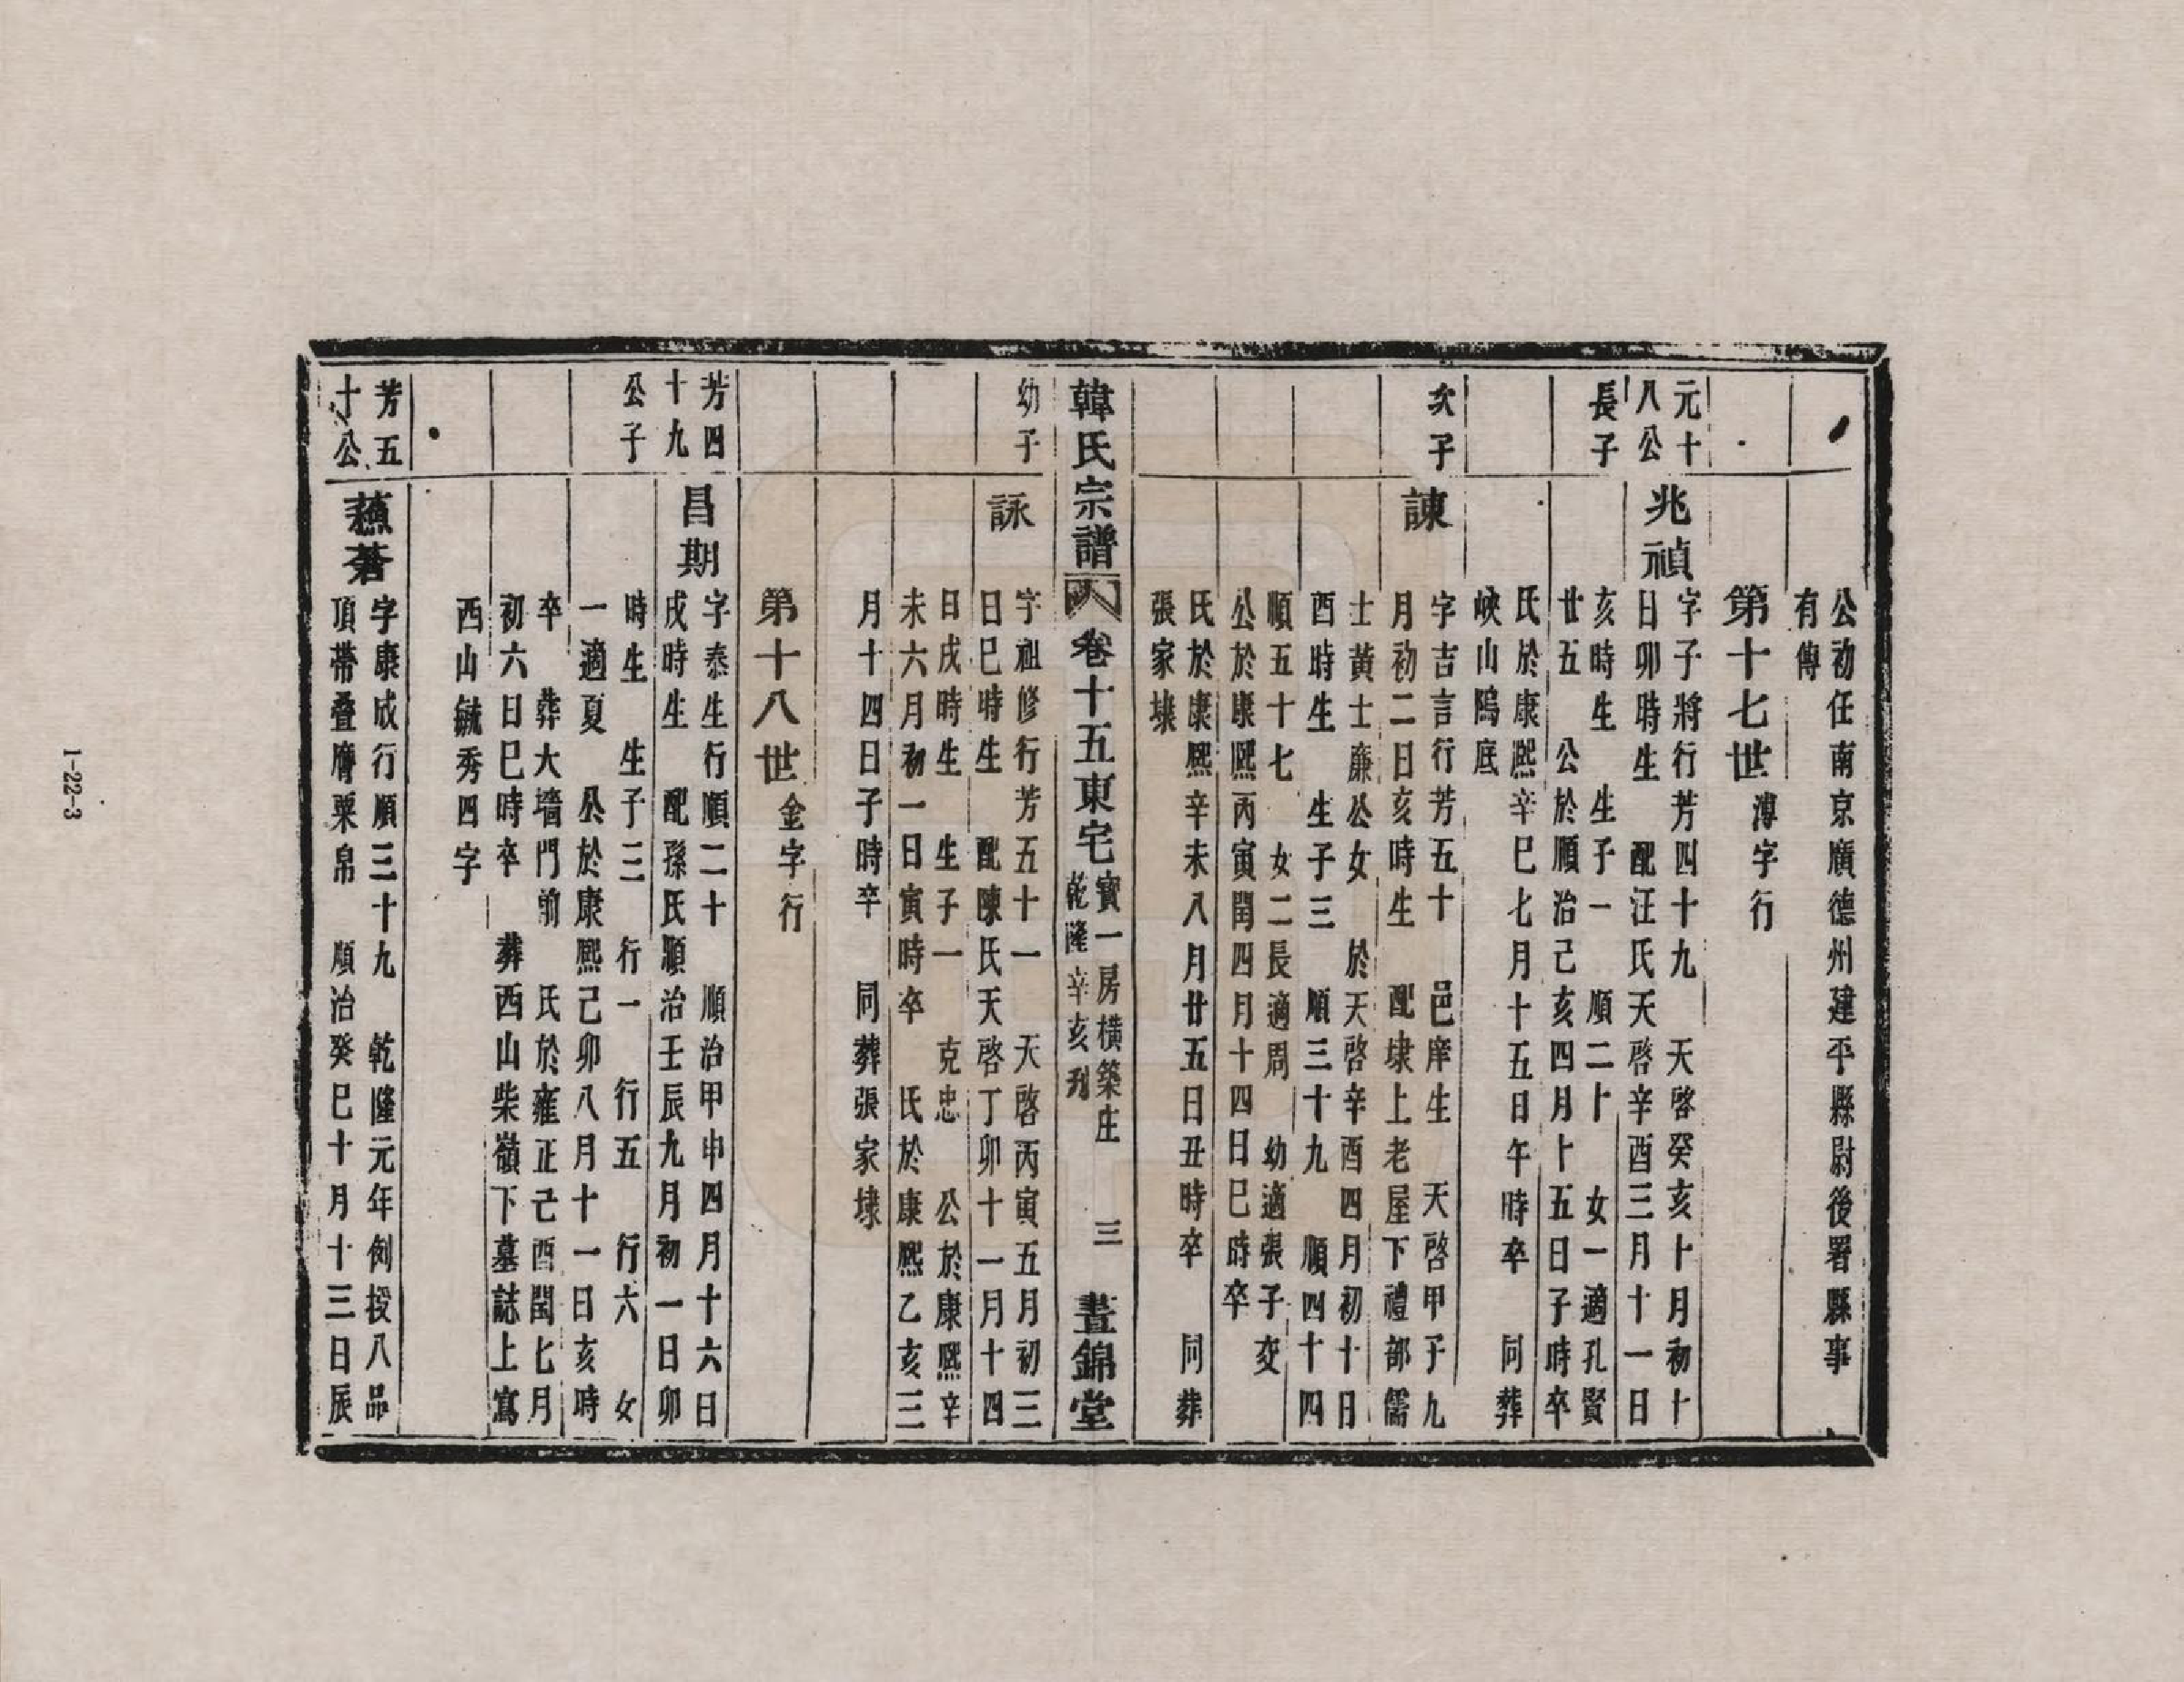 公初任南京廣德州建平縣尉後署縣事
有傳
第十七世 溥字行
元十
八公
長子
兆禎
字子將行芳四十九 天啓癸亥十月初十
日卯時生 配汪氏天啓辛酉三月十一日
亥時生 生子一 順二十 女一適孔賢
廿五 公於順治己亥四月十五日子時卒
氏於康熙辛巳七月十五日午時卒 同葬
峽山隝底
次子
諫
字吉言行芳五十 邑庠生 天啓甲子九
月初二日亥時生 配埭上老屋下禮部儒
士黃士廉公女 於天啓辛酉四月初十日
酉時生 生子三 順三十九 順四十四
順五十七 女二長適周 幼適張子交
公於康熙丙寅閏四月十四日巳時卒
氏於康熙辛未八月廿五日丑時卒 同葬
張家埭
韓氏宗譜 卷十五東宅 寶一房横築庄 乾隆辛亥刊 三 晝錦堂
幼子
詠
字祖修行芳五十一 天啓丙寅五月初三
日巳時生 配陳氏天啓丁卯十一月十四
日戌時生 生子一 克忠 公於康熙辛
未六月初一日寅時卒 氏於康熙乙亥三
月十四日子時卒 同葬張家埭
第十八世 金字行
芳四
十九
公子
昌期
字泰生行順二十 順治甲申四月十六日
戌時生 配孫氏順治壬辰九月初一日卯
時生 生子三 行一 行五 行六 女
一適夏 公於康熙己卯八月十一日亥時
卒 葬大墻門前 氏於雍正己酉閏七月
初六日巳時卒 葬西山柴嶺下墓誌上寫
西山毓秀四字
芳五
十公
蕉蒼
字康成行順三十九 乾隆元年例授八品
頂帶叠膺粟帛 順治癸巳十月十三日辰
1-22-3